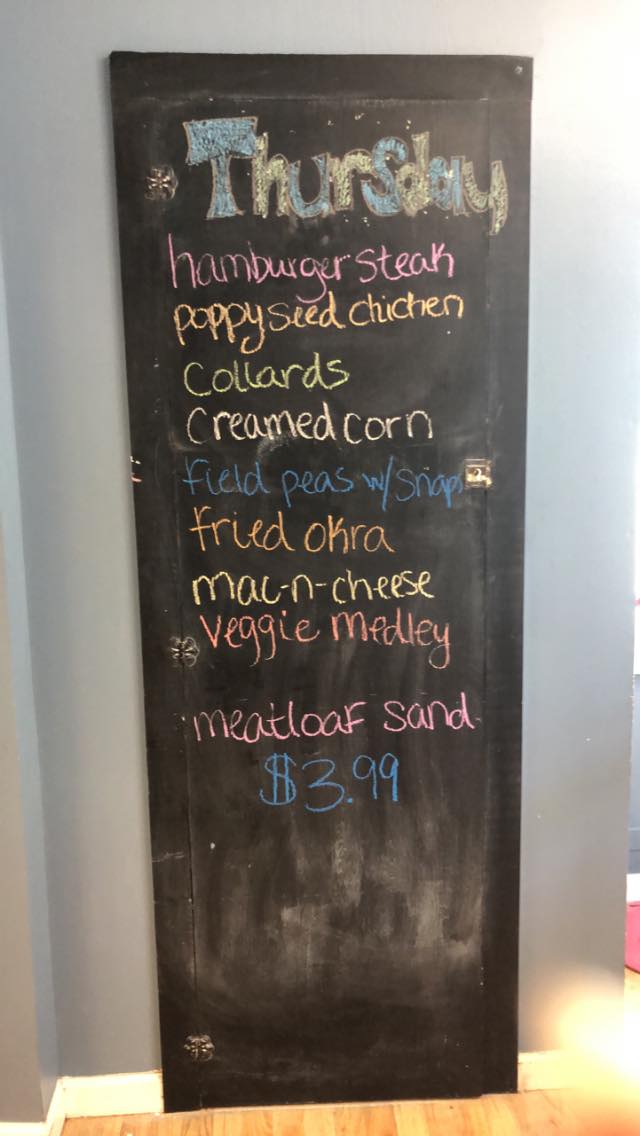 Thursday
hamburger steak
poppyseed chicken
Collards
Creamed corn
field peas w/snaps
fried okra
mac-n-cheese
veggie medley
meatloaf sand.
$3.99